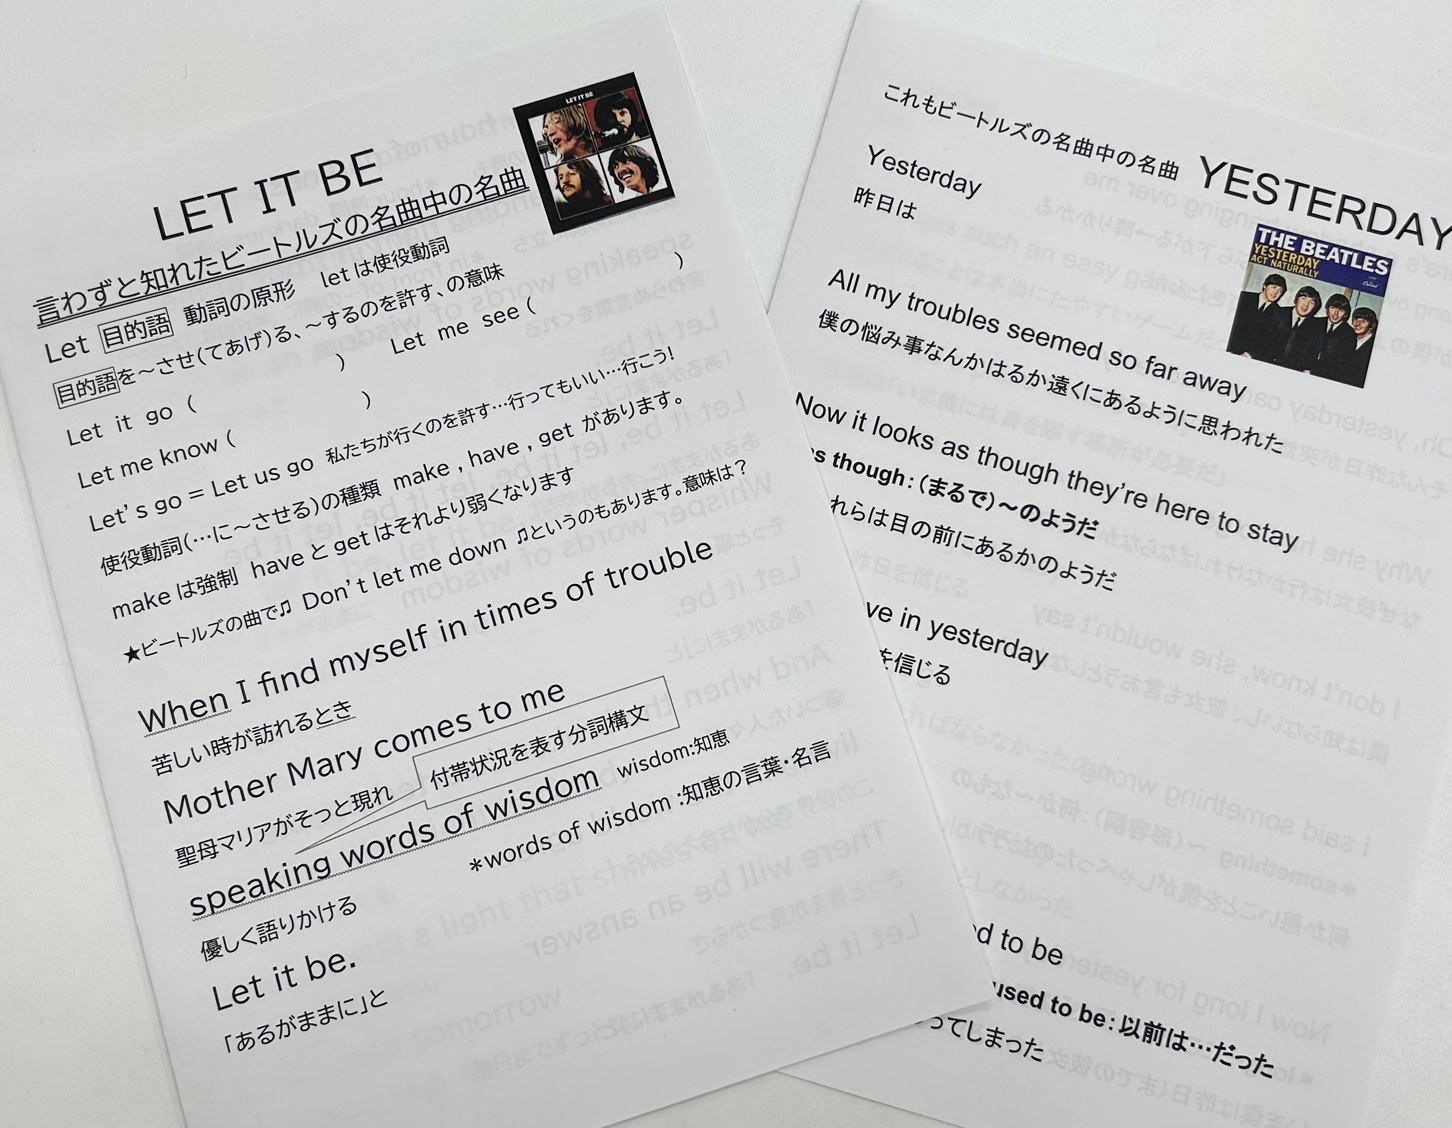 LET IT BE
言わずと知れたビートルズの名曲中の名曲
LET IT BE
Let 目的語 動詞の原形 let は使役動詞
目的語を～させ(てあげ)る、～するのを許す、の意味
Let it go ( ) Let me see ( )
Let me know ( )
Let's go = Let us go 私たちが行くのを許す…行ってもいい…行こう!
使役動詞(…に～させる)の種類 make , have , get があります。
make は強制 have と get はそれより弱くなります
★ビートルズの曲で♫ Don't let me down ♫というのもあります。意味は?
When I find myself in times of trouble
苦しい時が訪れるとき
Mother Mary comes to me
聖母マリアがそっと現れ
付帯状況を表す分詞構文
speaking words of wisdom wisdom:知恵
*words of wisdom :知恵の言葉・名言
優しく語りかける
Let it be.
「あるがままに」と
これもビートルズの名曲中の名曲 YESTERDAY
THE BEATLES
YESTERDAY
ACT NATURALLY
Yesterday
昨日は
All my troubles seemed so far away
僕の悩み事なんかはるか遠くにあるように思われた
Now it looks as though they're here to stay
as though:(まるで)～のようだ
れらは目の前にあるかのようだ
ve in yesterday
を信じる
ed to be
used to be:以前は…だった
ってしまった